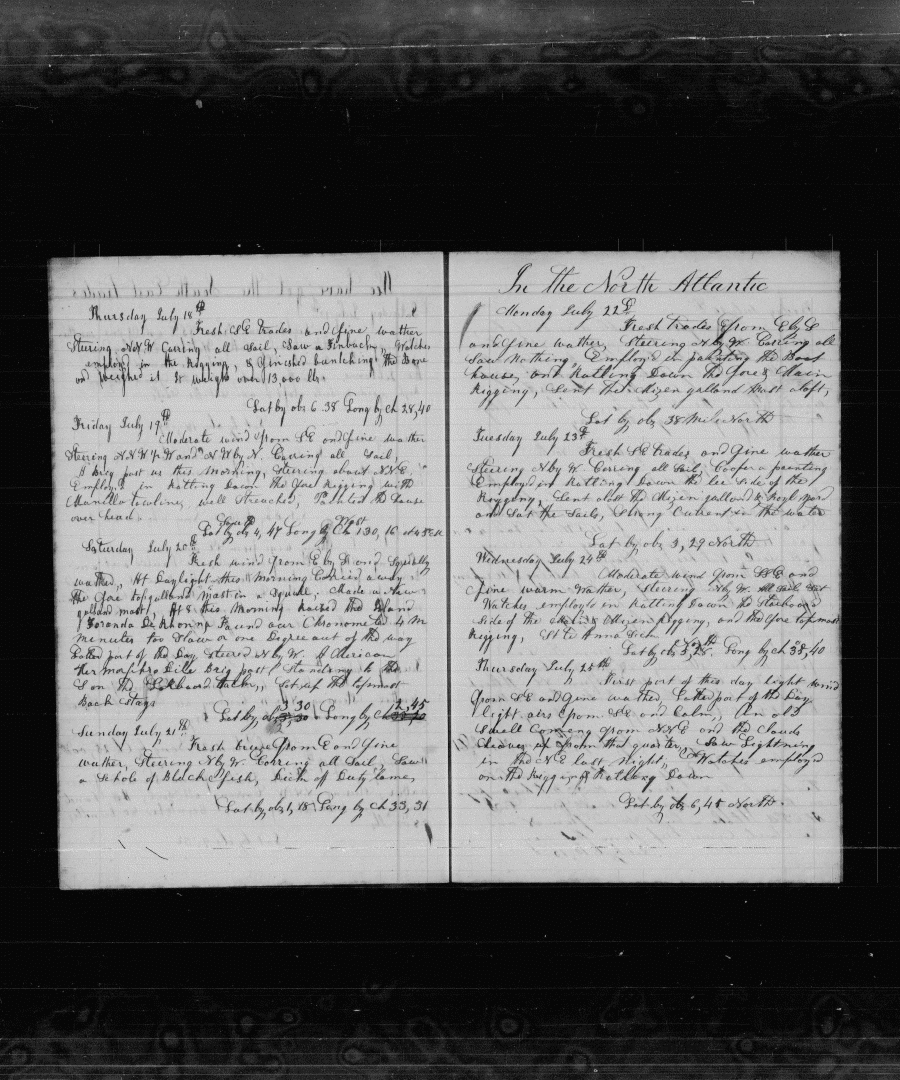 Thursday July 18th
Fresh S.E. trades and fine wather
Steering NNW Carring all Sail, Saw a Finback, Watches
employed in the Rigging, & finished buntching the Bone
and weighed it It weighs over 13,000 lbs.
Lat by obs 6 38 Long by Ch 28,40
Friday July 19th
Moderate wind from SE and fine wather
Steering NNW and N by W. Carring all Sail,
A Brig past us this morning, Steering about NNE,
Employed in Ratling Down the fore Rigging with
Manilla towline, well Streached, Painted the house
over head,
Lat by obs 4, 47 Long by Ch 30, 16
Saturday July 20th
Fresh wind from E by S and Squally
wather, At Daylight this Morning Carried away
the fore topgallant mast in a Squall, Made a New
gallant mast, At 8 this Morning raised the Island
Fernando Noronha Found our Chronometer 4 M
minutes too Slow or one Degree out of the way
Latter part of the Day Steered N by W. A American
hermaphrodite Brig past Standing to the
S on the Larboard tack, Set up the topmast
Back Stays
3 30 2,45
Lat by obs Long by Ch
Sunday July 21th
Fresh brieze from E and fine
wather, Steering N by W Carring all Sail, Saw
a School of Blackfish, Dick off Duty lame,
Lat by obs 1, 18 Long by Ch 33, 31
In the North Atlantic
Monday July 22d
Fresh trades from E by S
and fine wather, Steering N by W. Carring all
Saw Nothing, Employed in painting the Boat
house, and Ratling Down the fore & Main
Rigging, Sent the Mizen galland Mast aloft,
Lat by obs 38 Mile North
Tuesday July 23d
Fresh SE trades and fine wather
Steering N by W Carring all Sail, Cooper a painting
Employed in Ratling Down the lee side of the
Rigging, Sent aloft the Mizen galland & Royl yard
and Sat the Sails, Strong Current in the water
Lat by obs 3, 29 North
Wednesday July 24th
Moderate wind from SE and
fine warm Wather, Steering N by W. All Sail Set
Watches employed in Ratling Down the Starboard
Side of the Mizen Rigging, and the fore topmast
Rigging,
North
Lat by obs 5, 28 Long by Ch 38, 40
Thursday July 25th
First part of this day light wind
from SE and fine wather, Latter part of the Day
light airs from SE and Calm, An old
Swell Comeng from NNE and the Clouds
Cleaver up from that quarter, Saw Lightning
in the NE last Night, Watches employed
on the Rigging Ratling Down
Lat by obs 6, 45 North.